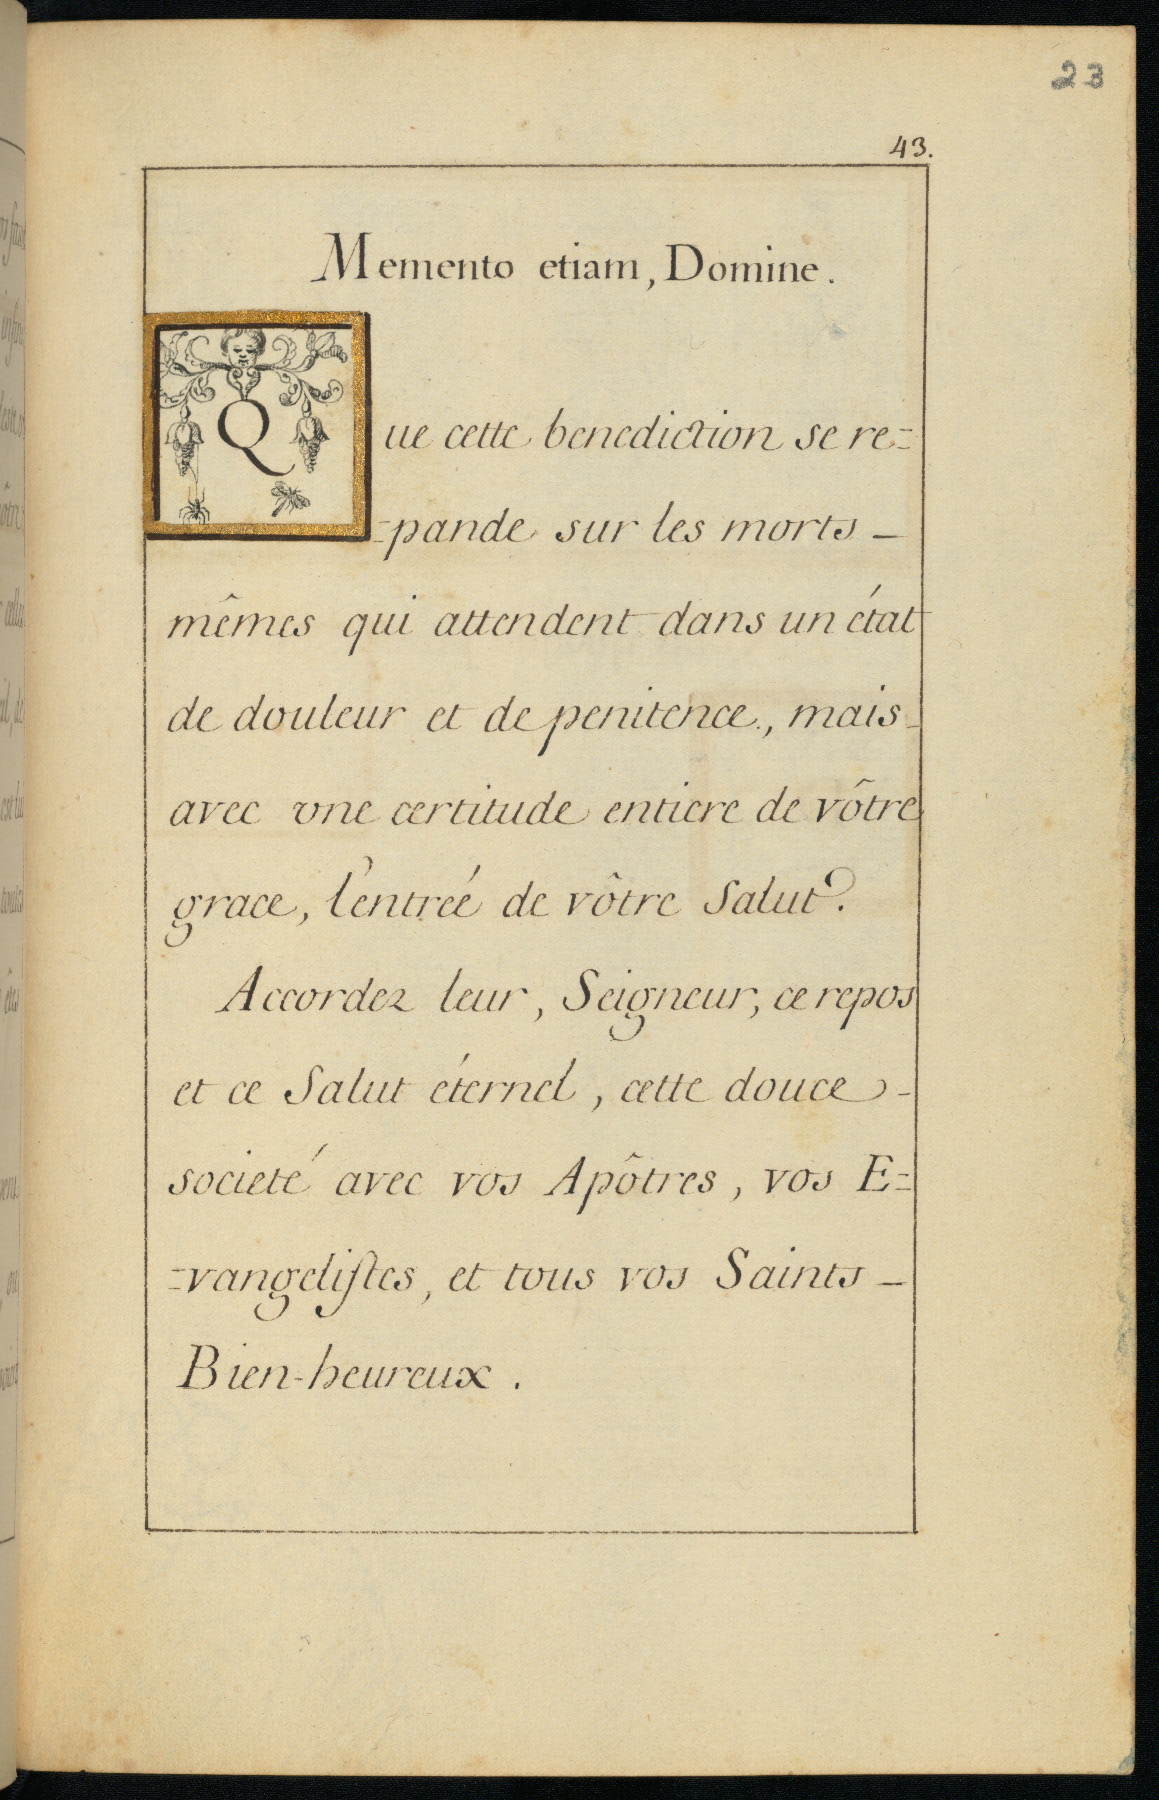 23
43.
Memento etiam, Domine.
Que cette benediction se re=
=pande sur les morts –
mêmes qui attendent dans un état
de douleur et de penitence, mais
avec vne certitude entiere de vôtre
grace, l'entreé de vôtre Salut?
Accordez leur, Seigneur, ce repos
et ce Salut éternel, cette douce -
societé avec vos Apôtres, vos E=
=vangelistes, et tous vos Saints –
Bien-heureux.